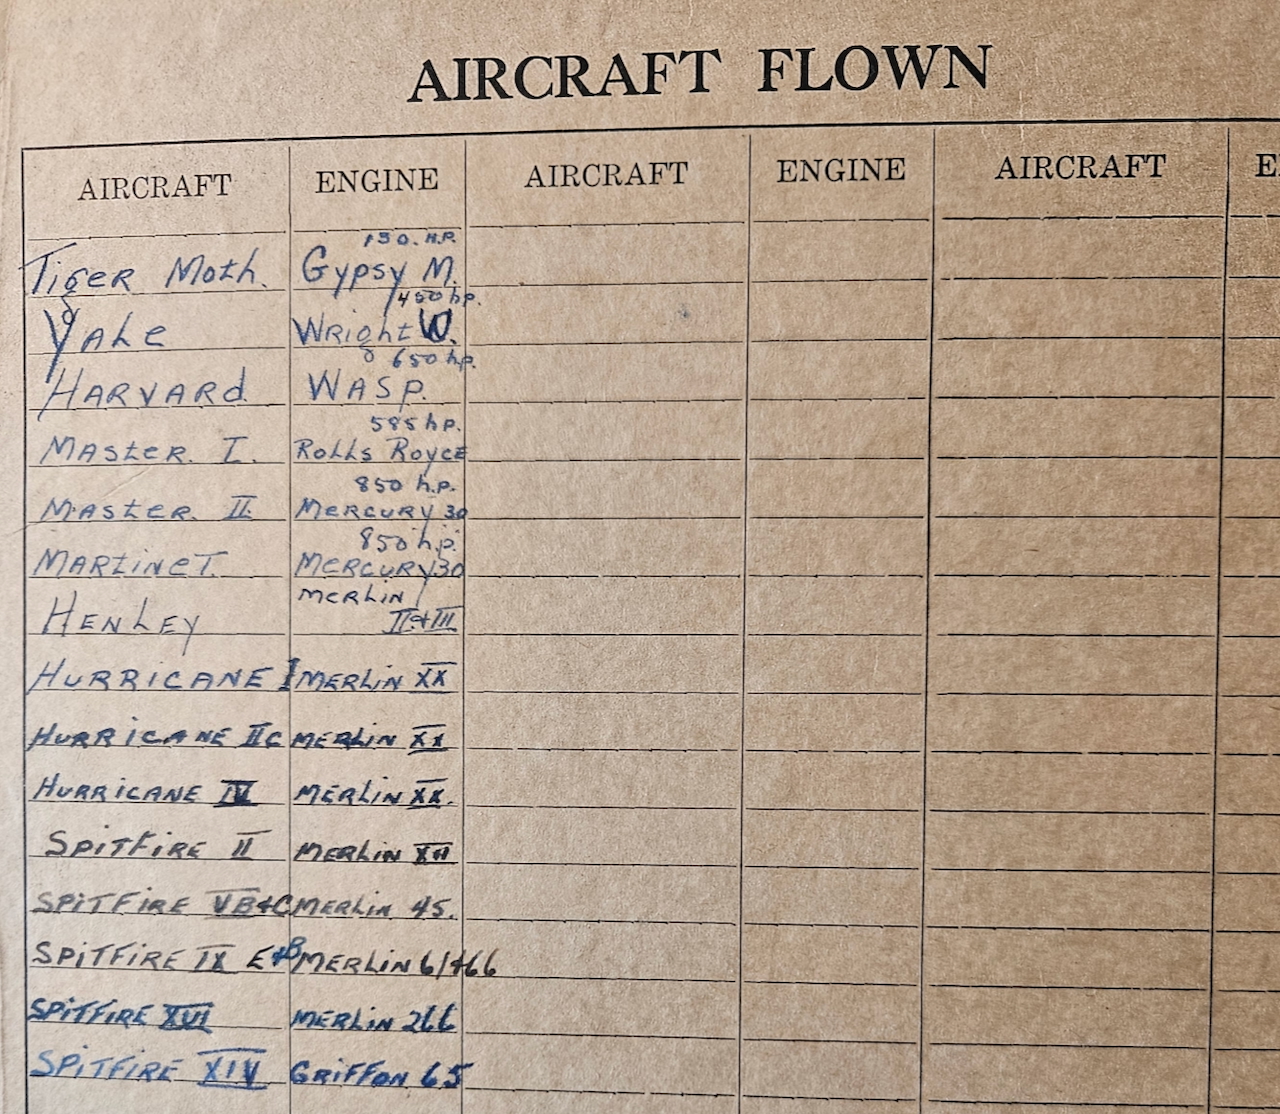 AIRCRAFT FLOWN
AIRCRAFT ENGINE AIRCRAFT ENGINE AIRCRAFT
130. H.P.
Tiger Moth. Gypsy M.
450 hp.
Yale Wright W.
650 hp.
HARVARd WASP.
585 hp.
MASter I. Rolls Royce
850 h.p.
MASter II MERCURY 30
850 h.p.
MARtineT. MERCURY 30
MERLIN
HENLEY II & III
HURRICANE I MERLIN XX
HURRICANE IIC MERLIN XX
HURRICANE IV MERLIN XX.
SPITFIRE II MERLIN XII
SPITFIRE VB & C MERLIN 45.
SPITFIRE IX E & B MERLIN 61 & 66
SPITFIRE XVI MERLIN 266
SPITFIRE XIV GRIFFON 65